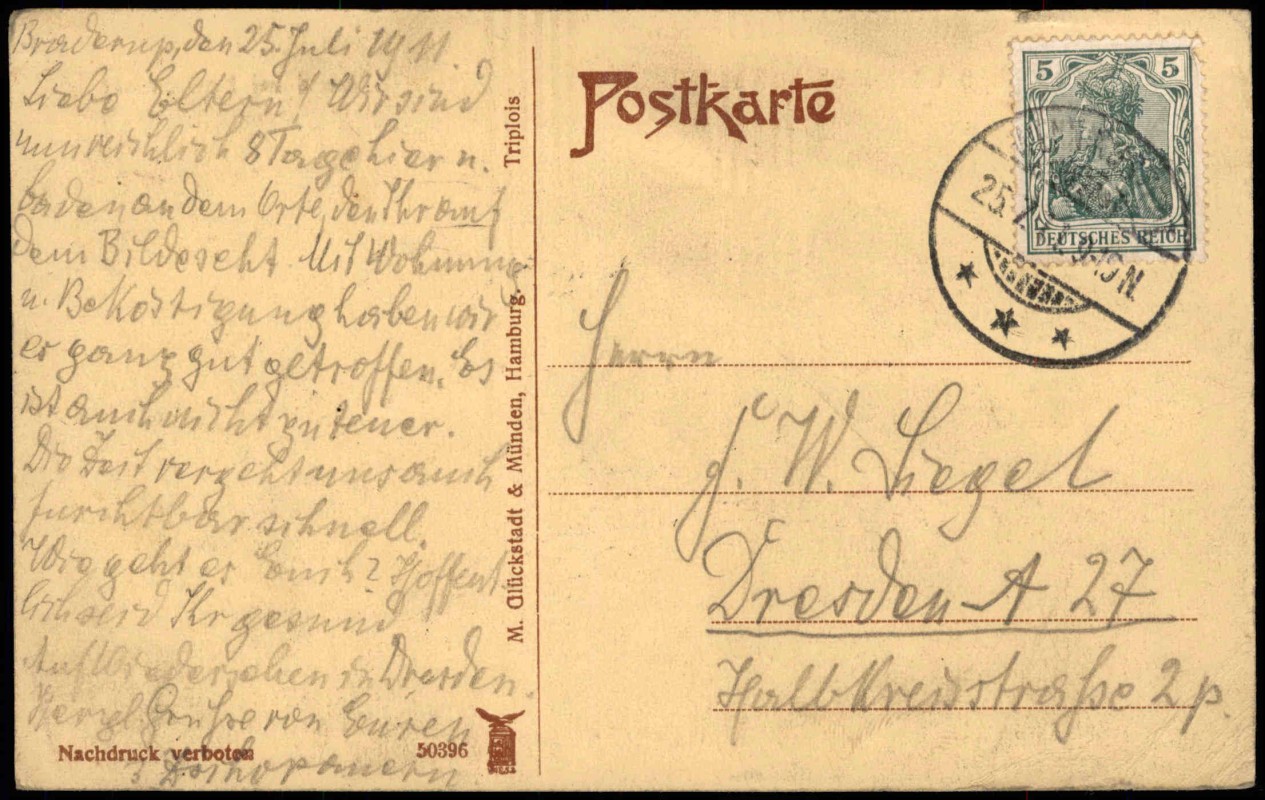 Braderup, den 25. Juli 1911.
Liebe Eltern! Wir sind
nun reichlich 8 Tage hier u.
baden an dem Orte, den Ihr auf
dem Bilde seht. Mit Wohnung
u. Beköstigung haben wir
es ganz gut getroffen. Es
ist auch nicht zu teuer.
Die Zeit vergeht uns auch
furchtbar schnell.
Wie geht es Euch? Hoffent
lich seid Ihr gesund
Auf Wiedersehen in Dresden.
Herzl. Grüsse von Euren
3
Nachdruck verboten
50396
M. Glückstadt & Münden, Hamburg. Triplois
Postkarte
5 5
DEUTSCHES REICH
25.7.
N.
Herrn
J. W. Liegel
Dresden A 27
Halbkreisstraße 2 p.